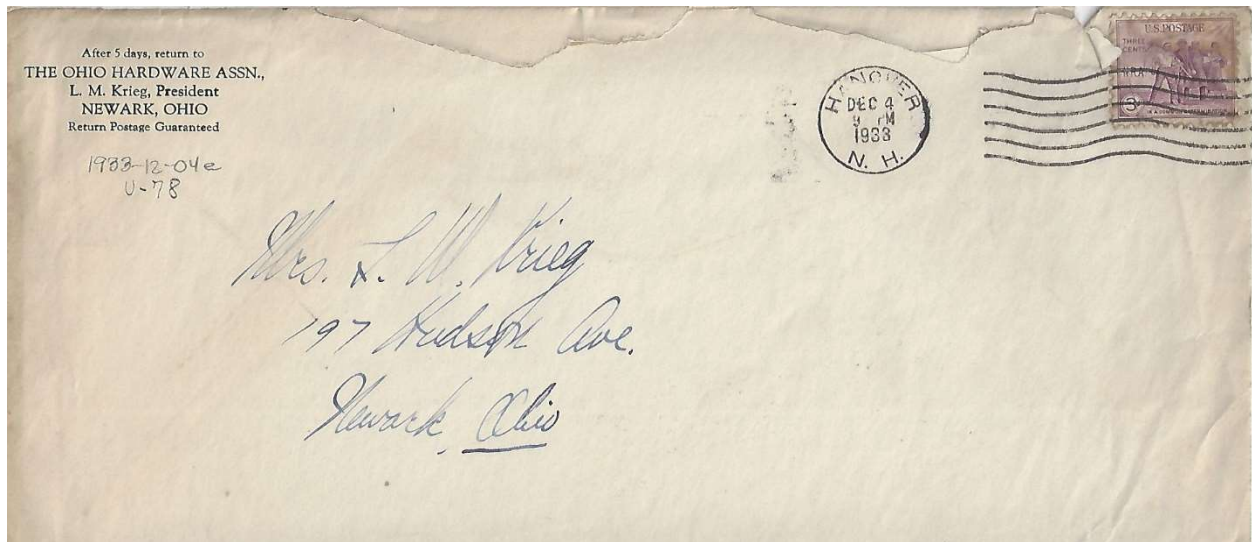 After 5 days, return to
THE OHIO HARDWARE ASSN.,
L. M. Krieg, President
NEWARK, OHIO
Return Postage Guaranteed
1933-12-04e
U-78
HANOVER
DEC 4
9 PM
1933
N. H.
U.S. POSTAGE
THREE
CENTS
NRA
3
Mrs. L. W. Krieg
197 Hudson Ave.
Newark, Ohio